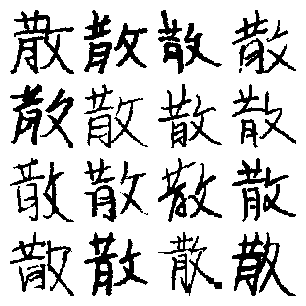 散散散散
散散散散
散散散散
散散散散